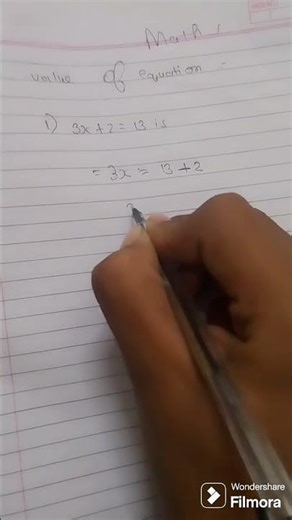 Math
value of equation -
1) 3x + 2 = 13 is
= 3x = 13 + 2
Wondershare
Filmora